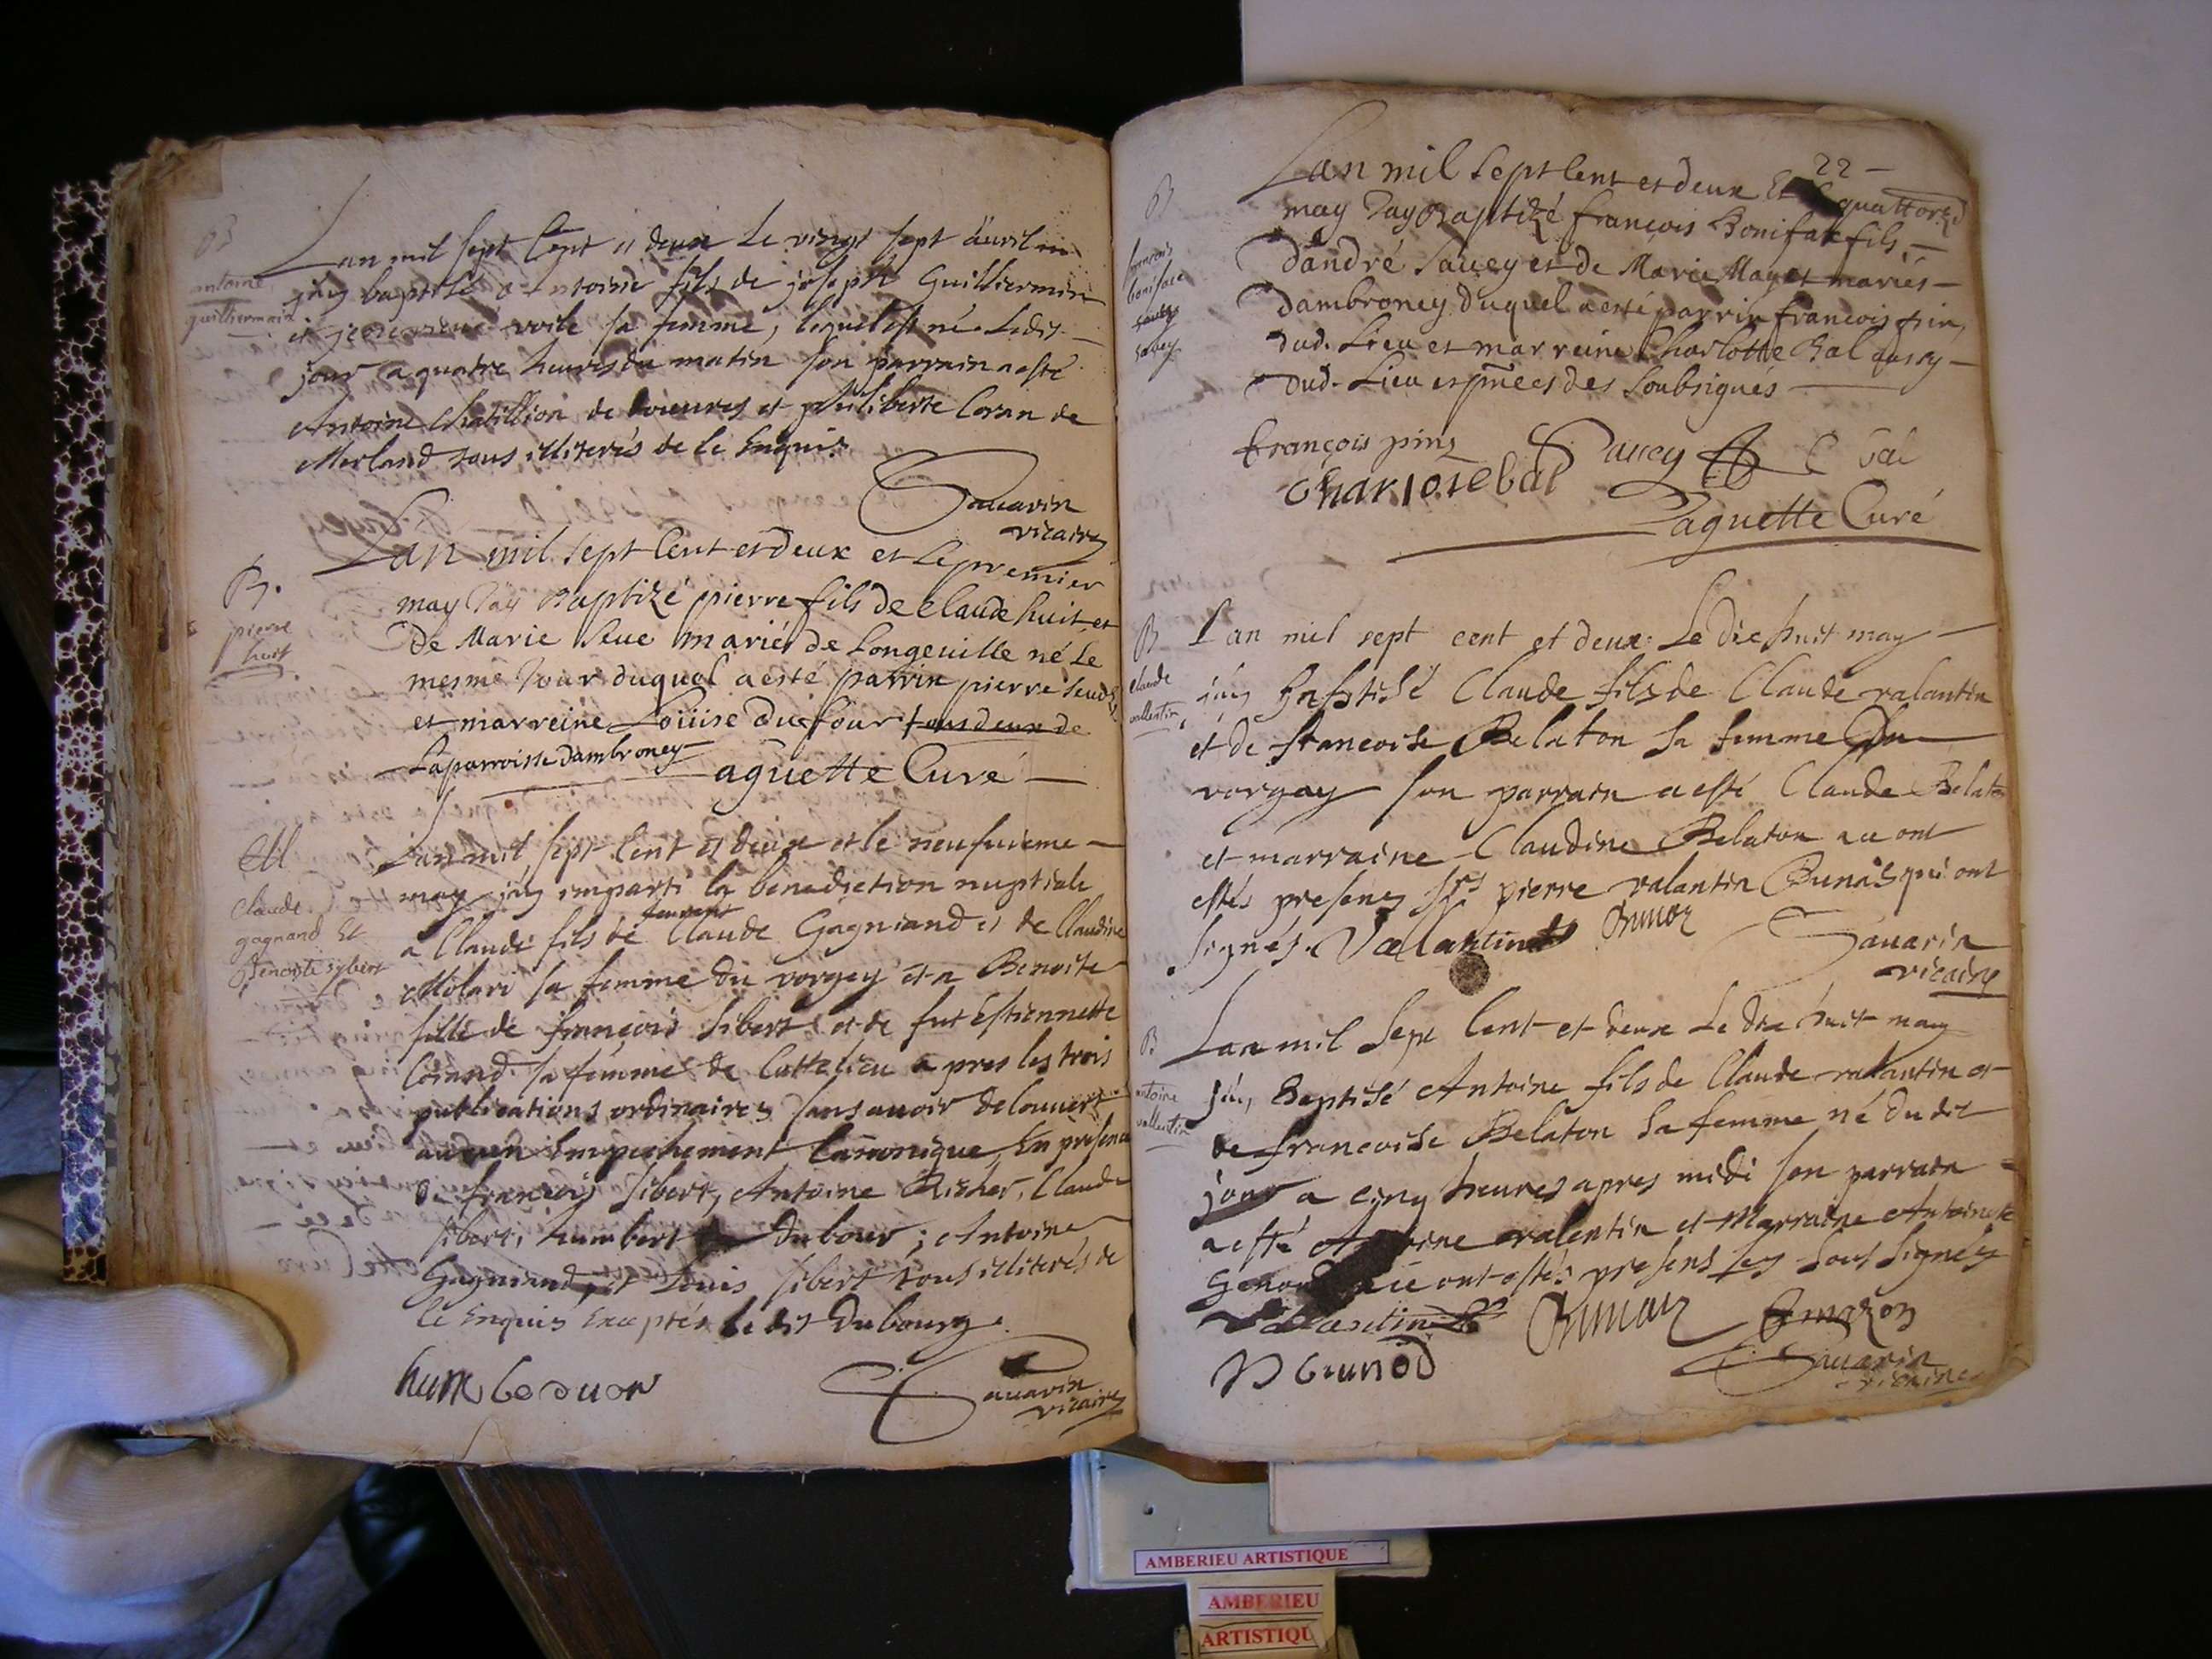 B
antoine
guilliermin
Lan mil sept Cent et deux Le vingt sept auril
jay baptisé Antoine fils de joseph Guilliermin
et voile sa femme, lequel est né Ledit
jour a quatre heures du matin son parrain a esté
Antoine Chatillion de douures et philiberte Coran de
Merland tous illiterés de le Enquis
Sauarin
vicaire
B.
pierre
huit
Lan mil sept Cent et deux et Le premier
may Jay Baptizé pierre fils de Claude huit et
De Marie seue mariés de Longeuille né Le
mesme Jour duquel a esté parrin pierre
et marreine Loüise Dufour tous deux de
Laparroisse Dambroney
aguette Curé
M
Claude
gagnand Et
Benoiste sybert
Lan mil sept Cent et deux et le neufuieme
may jay imparti la benediction nuptiale
a Claude fils de Claude Gagniand et de Claudine
Molari sa femme du vorgey et a Benoite
fille de françois sibert et de fut Estiennette
Corand sa femme de Cuttelieu a pres les trois
publications ordinaires sans auoir decouuert
aucuen Empechement Canonique, En presence
de françois sibert, Antoine Richer, Claude
sibert, humbert Dubour; Antoine
Gagniand, et Louis sibert tous illiterés de
le Enquis Exceptés le dit Dubourg.
humbeduor
Sauarin
vicaire
22
B
francois
boniface
saucy
Lan mil Sept Cent et deux Et quattorze
may Jay Baptizé françois Bonifax fils
dandré Saucey et de Marie Mayet mariés
dambroney Duquel a esté parrin francois pin
dud. Lieu et marreine Charlotte Bal aussy
dud. Lieu et pñces des Soubsignés
françois pin
Saucy
C bal
Charlote bal
Paguette Curé
B
claude
vallentin
Lan mil sept cent et deux Le dix huit may
jay Baptisé Claude fils de Claude valantin
et de francoise Belaton sa femme Du
vorgay son parrain a esté Claude Belaton
et marraine Claudine Belaton a ce ont
estés presens Srs pierre valantin Brunas qui ont
signés. Valantin
Sauarin
vicaire
B
antoine
vallentin
Lan mil Sept Cent et deux Le dix huit may
Jay Baptisé Antoine fils de Claude valantin et
de francoise Belaton sa femme né du dit
jour a cinq heures apres midi son parrain
a esté Antoine valentin et Marraine Antoinete
a ce ont estés presens les Sous signés
Valantin
Brunod
Sauarin
vicaire
AMBERIEU ARTISTIQUE
AMBERIEU
ARTISTIQU